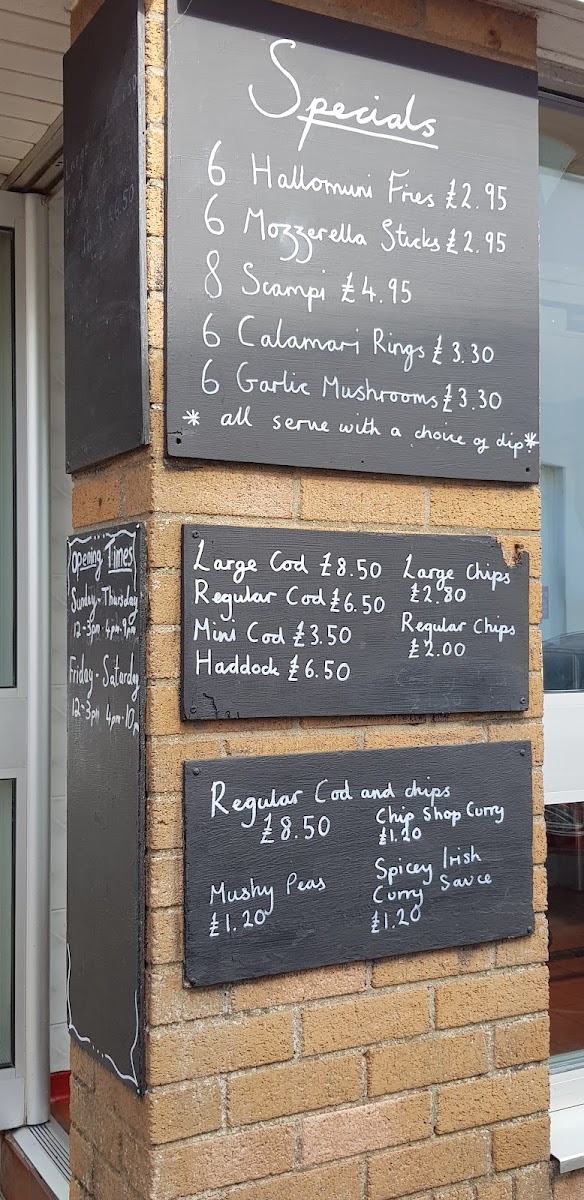 Specials
6 Hallomuni Fries £2.95
6 Mozzerella Sticks £2.95
8 Scampi £4.95
6 Calamari Rings £3.30
6 Garlic Mushrooms £3.30
* all serve with a choice of dip*
Opening Times
Sunday - Thursday
12-3pm 4pm-9pm
Friday - Saturday
12-3pm 4pm-10pm
Large Cod £8.50
Regular Cod £6.50
Mini Cod £3.50
Haddock £6.50
Large Chips
£2.80
Regular Chips
£2.00
Regular Cod and chips
£8.50
Mushy Peas
£1.20
Chip Shop Curry
£1.20
Spicey Irish
Curry Sauce
£1.20